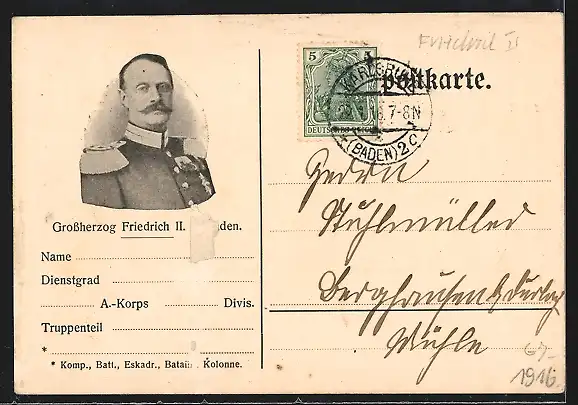 Friedrich II
Postkarte.
5
DEUTSCHES REICH
KARLSRUHE
7-8N
(BADEN) 2
Herrn
Stuhlmüller
Berghausen b/ Durlach
Mühle
1916
Großherzog Friedrich II. den.
Name
Dienstgrad
A.-Korps Divis.
Truppenteil
*
* Komp., Batt., Eskadr., Batail. Kolonne.